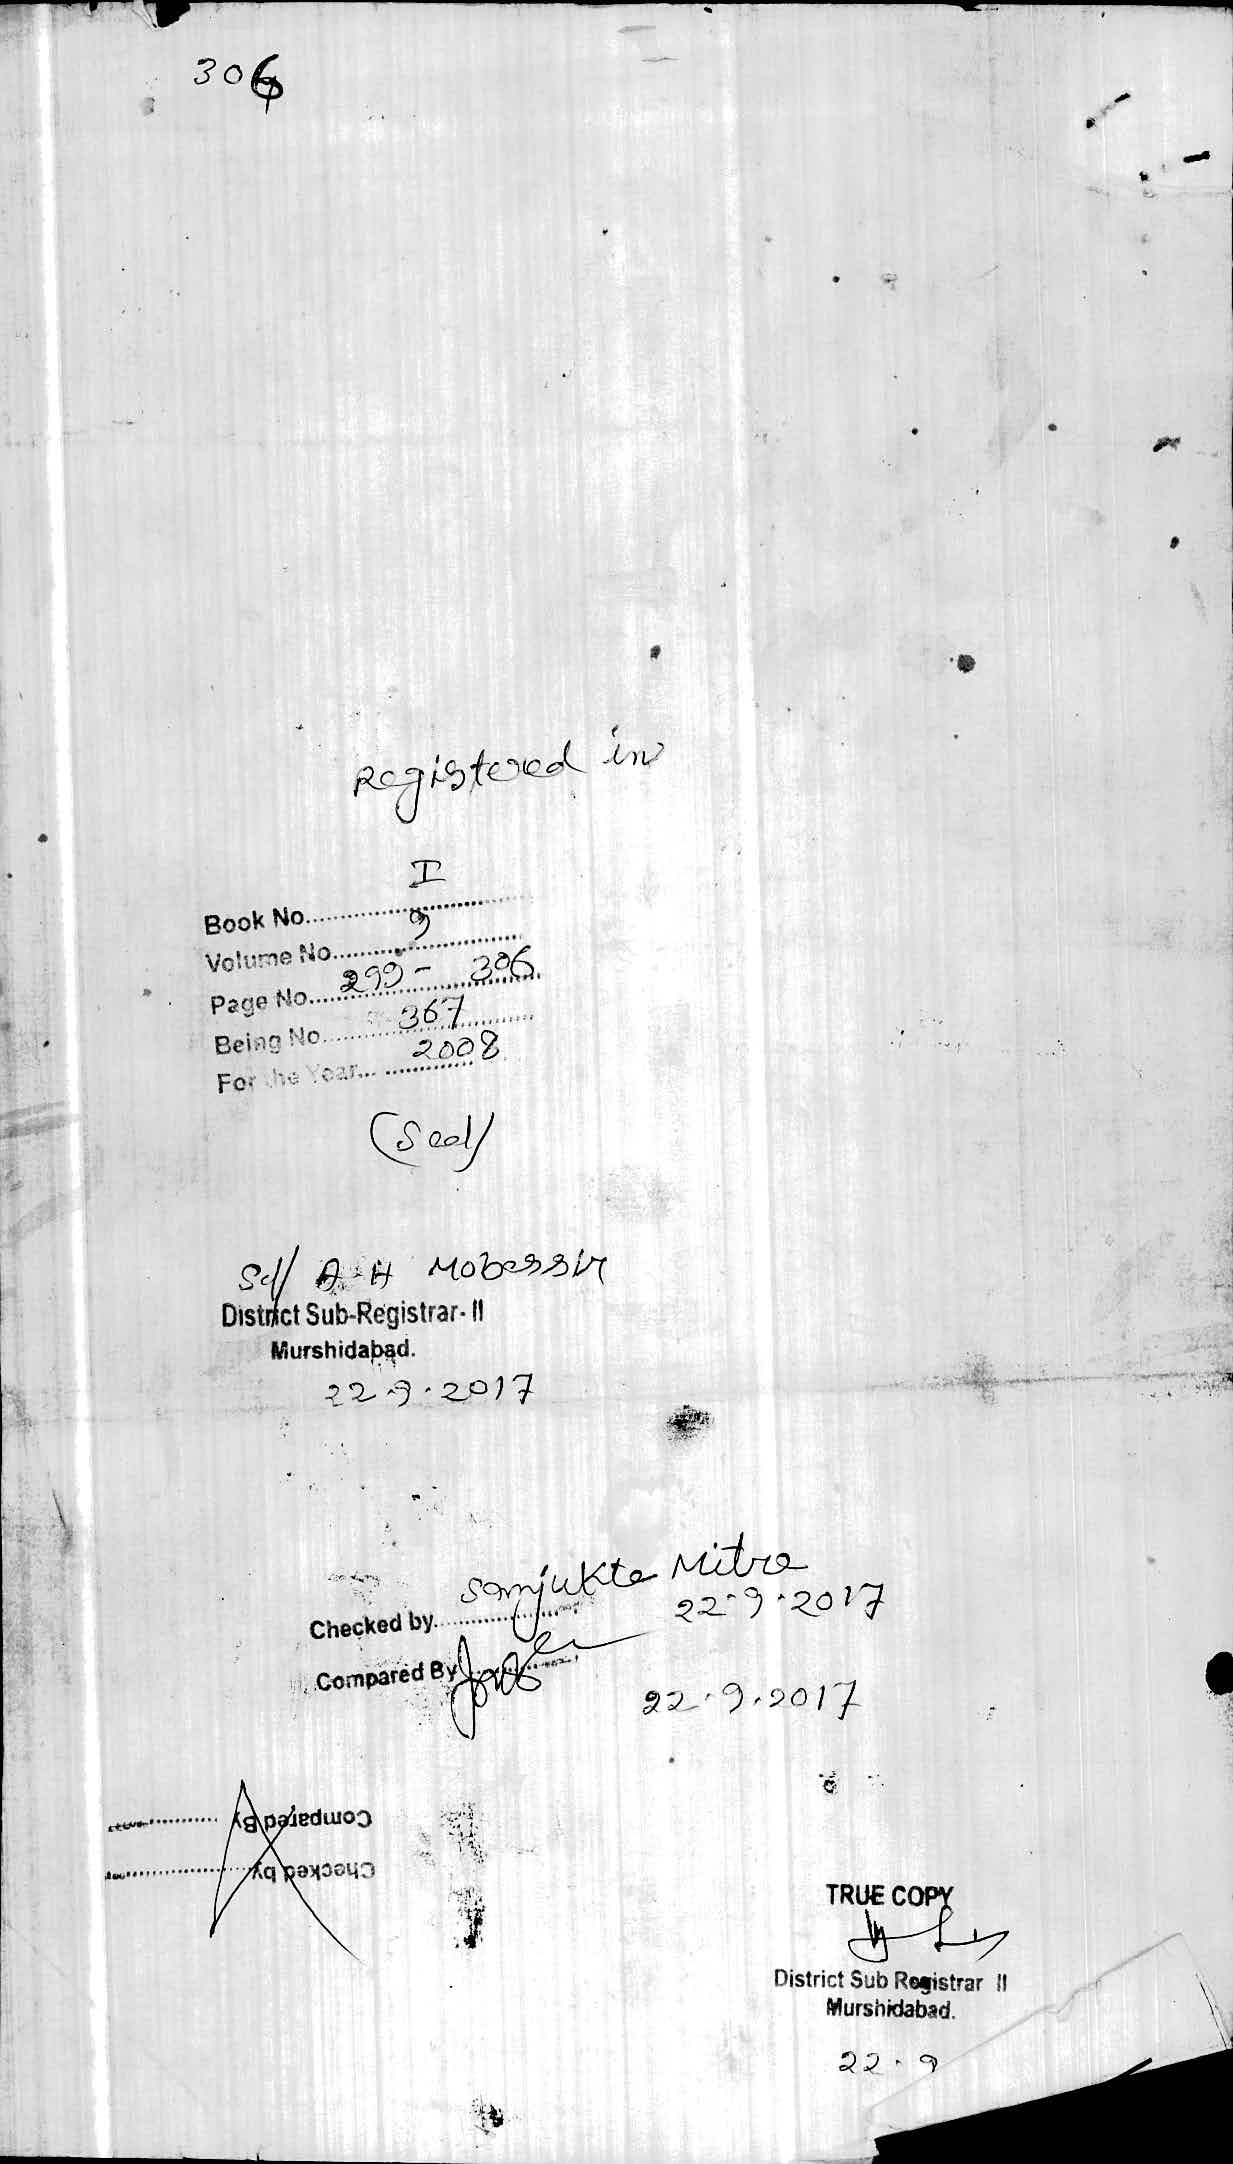 306
Registered in
I
Book No....................
9
Volume No....................
299 - 306
Page No....................
367
Being No....................
2008
For the Year....................
(Seal)
Sd/ A. H Mobassir
District Sub-Registrar- II
Murshidabad.
22.9.2017
Sanjukta Mitra
Checked by.................... 22.9.2017
Compared By....................
22.9.2017
Compared By
Checked by
TRUE COPY
District Sub Registrar II
Murshidabad.
22.9